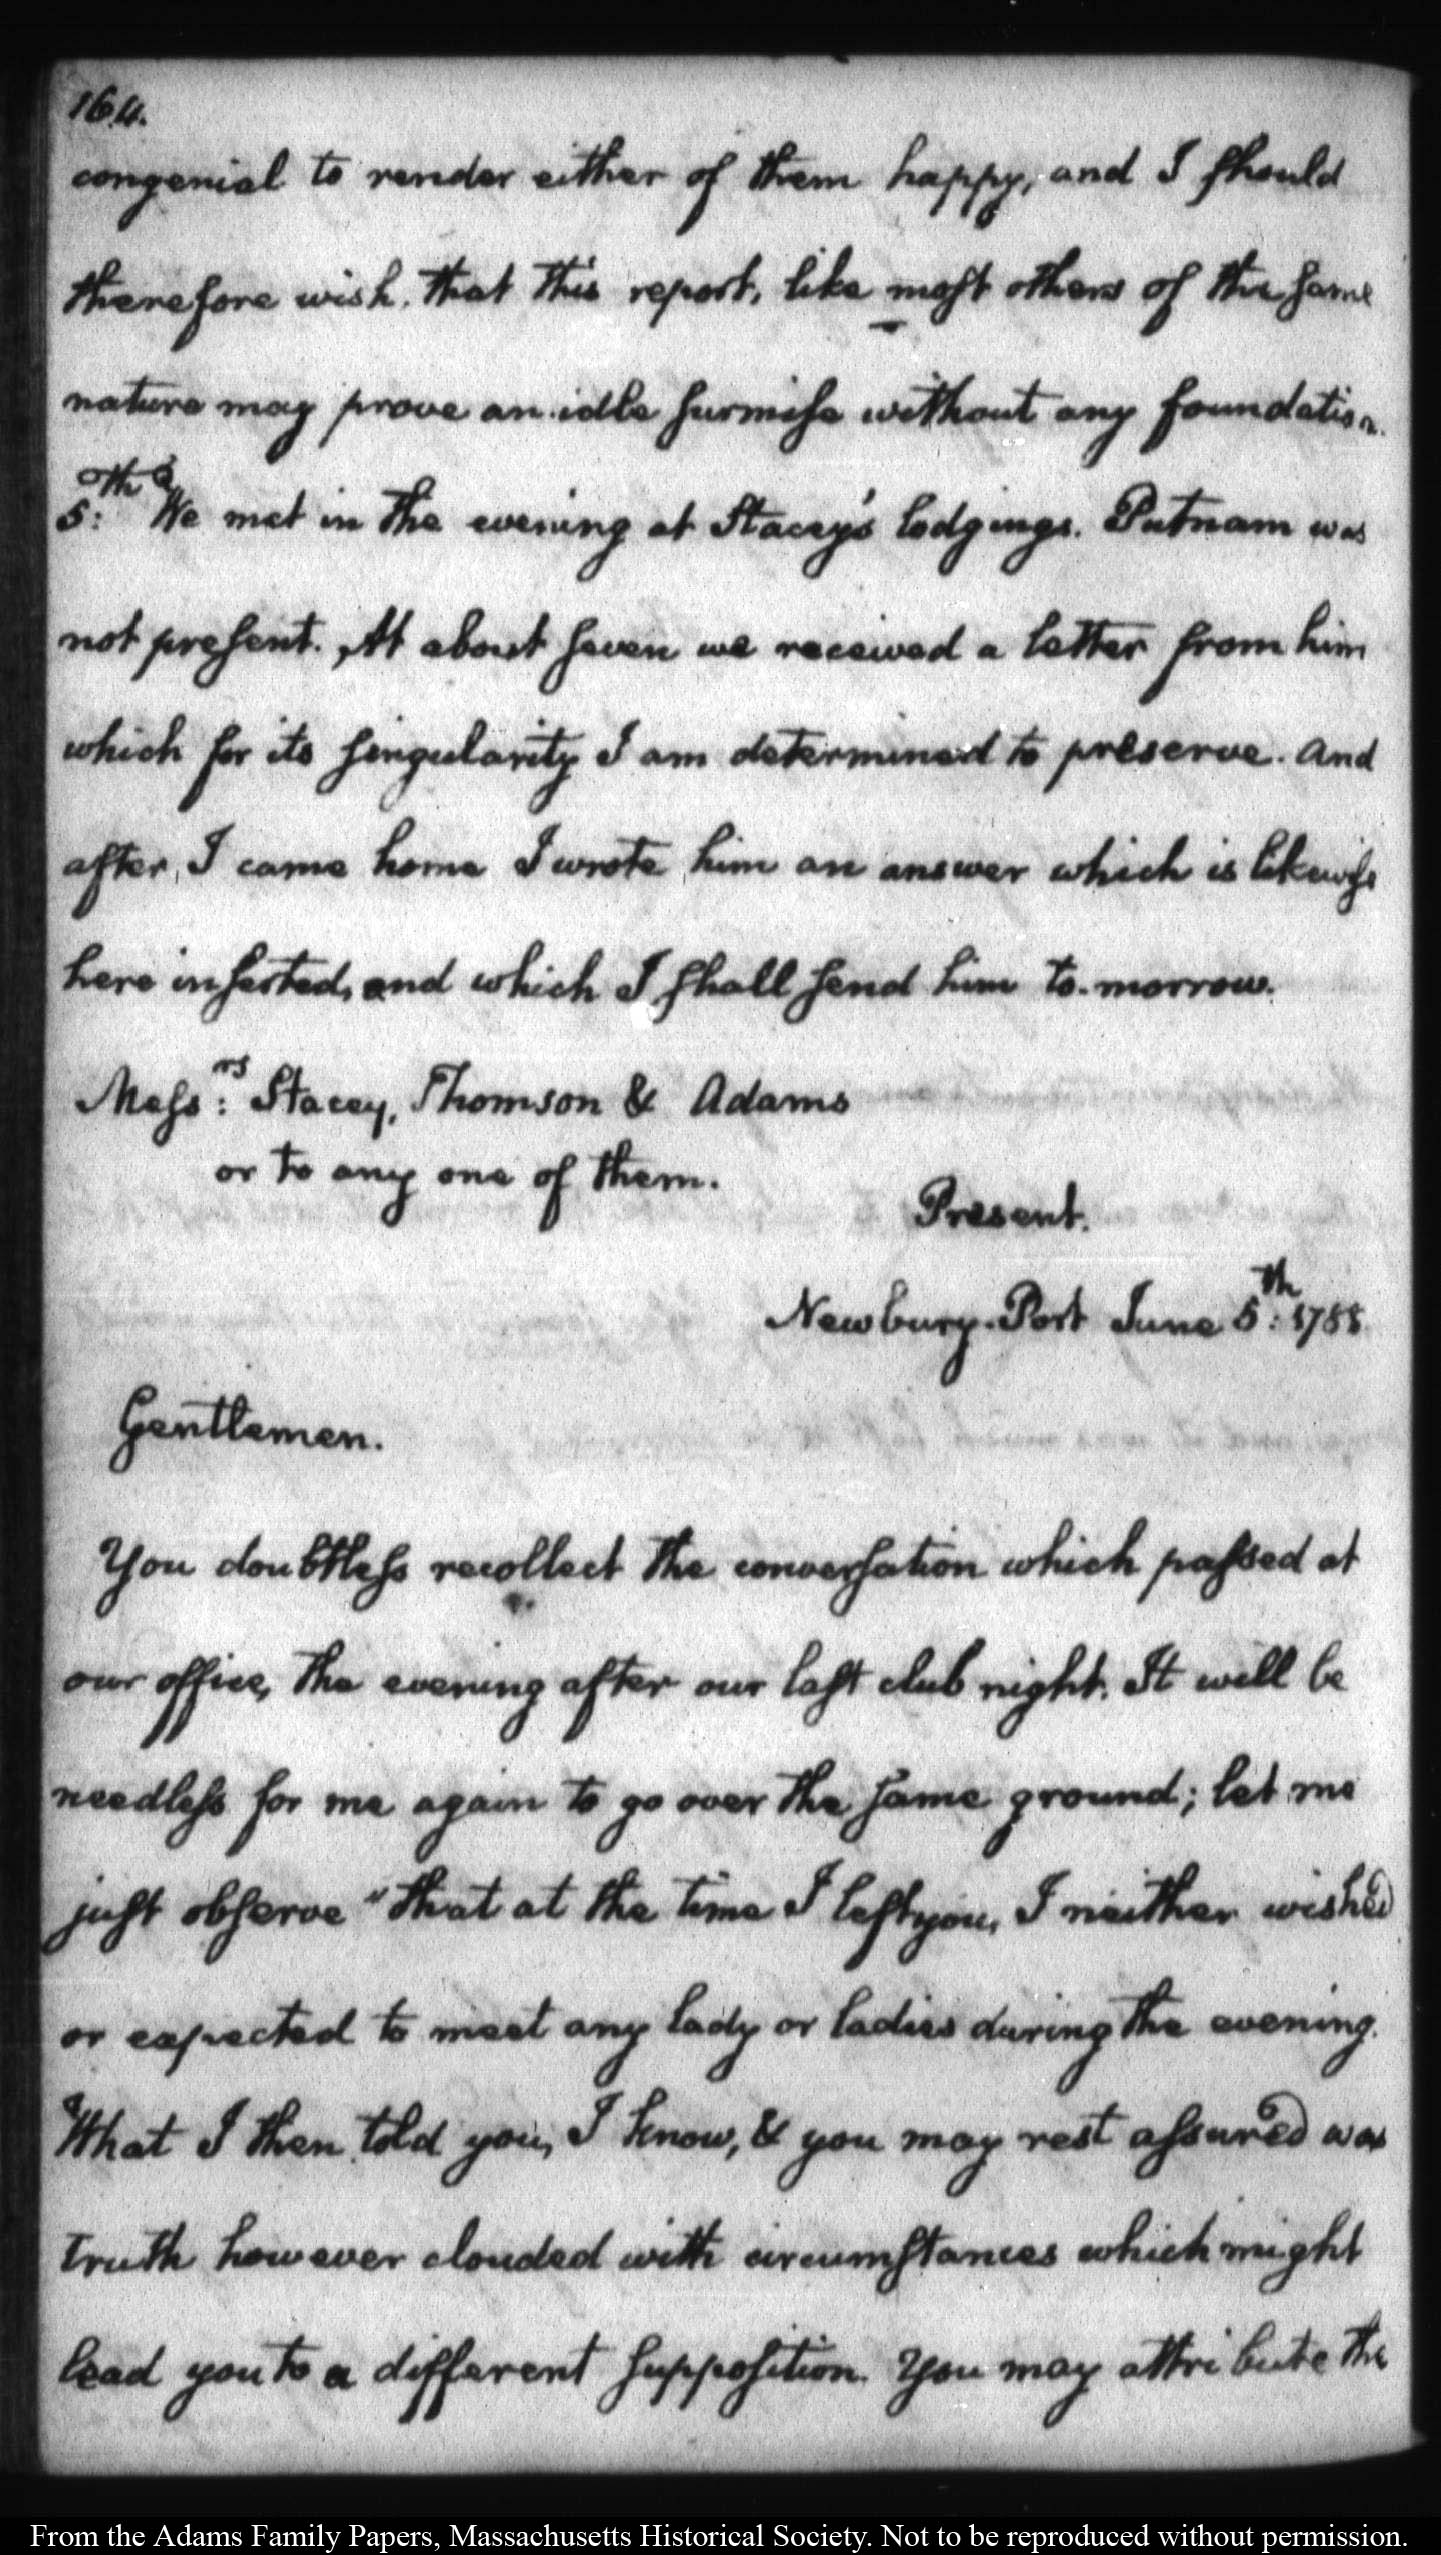 164.
congenial to render either of them happy, and I should
therefore wish, that this report, like most others of the same
nature may prove an idle surmise without any foundation.
5:th We met in the evening at Stacey's lodgings. Putnam was
not present. At about seven we received a letter from him
which for its singularity I am determined to preserve. And
after, I came home I wrote him an answer which is likewise
here inserted, and which I shall send him to-morrow.
Mess:rs Stacey, Thomson & Adams
or to any one of them.
Present.
Newbury-Port June 5:th 1788.
Gentlemen.
You doubtless recollect the conversation which passed at
our office, the evening after our last club night. It will be
needless for me again to go over the same ground; let me
just observe "that at the time I left you, I neither wished
or expected to meet any lady or ladies during the evening.
What I then told you, I know, & you may rest assured was
truth however clouded with circumstances which might
lead you to a different supposition. You may attribute the
From the Adams Family Papers, Massachusetts Historical Society. Not to be reproduced without permission.